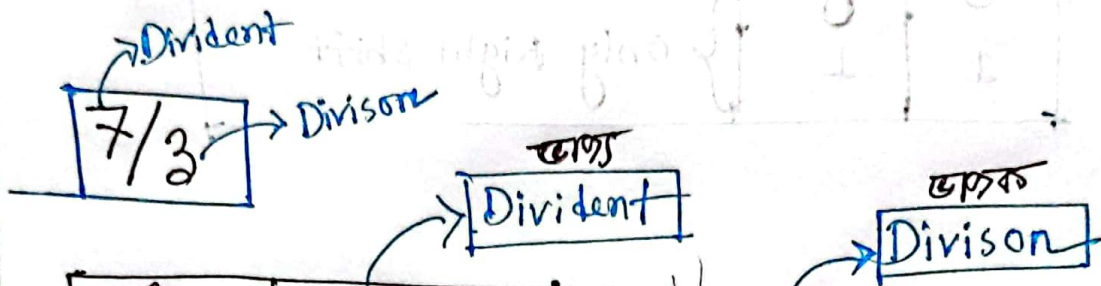 Divident
7/3
Divison
ভাজ্য
Divident
ভাজক
Divison